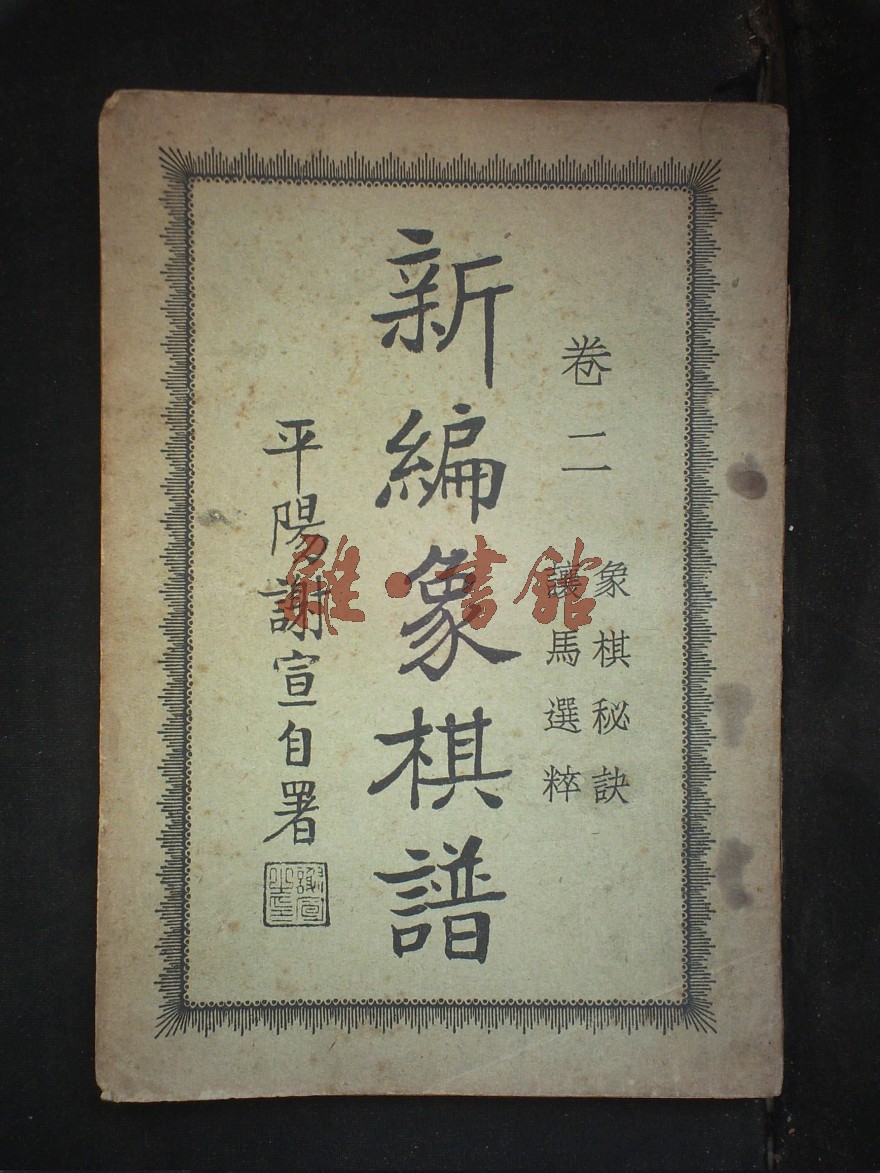 卷二
象棋秘訣
讓馬選粹
新編象棋譜
平陽謝宣自署
雅·書館